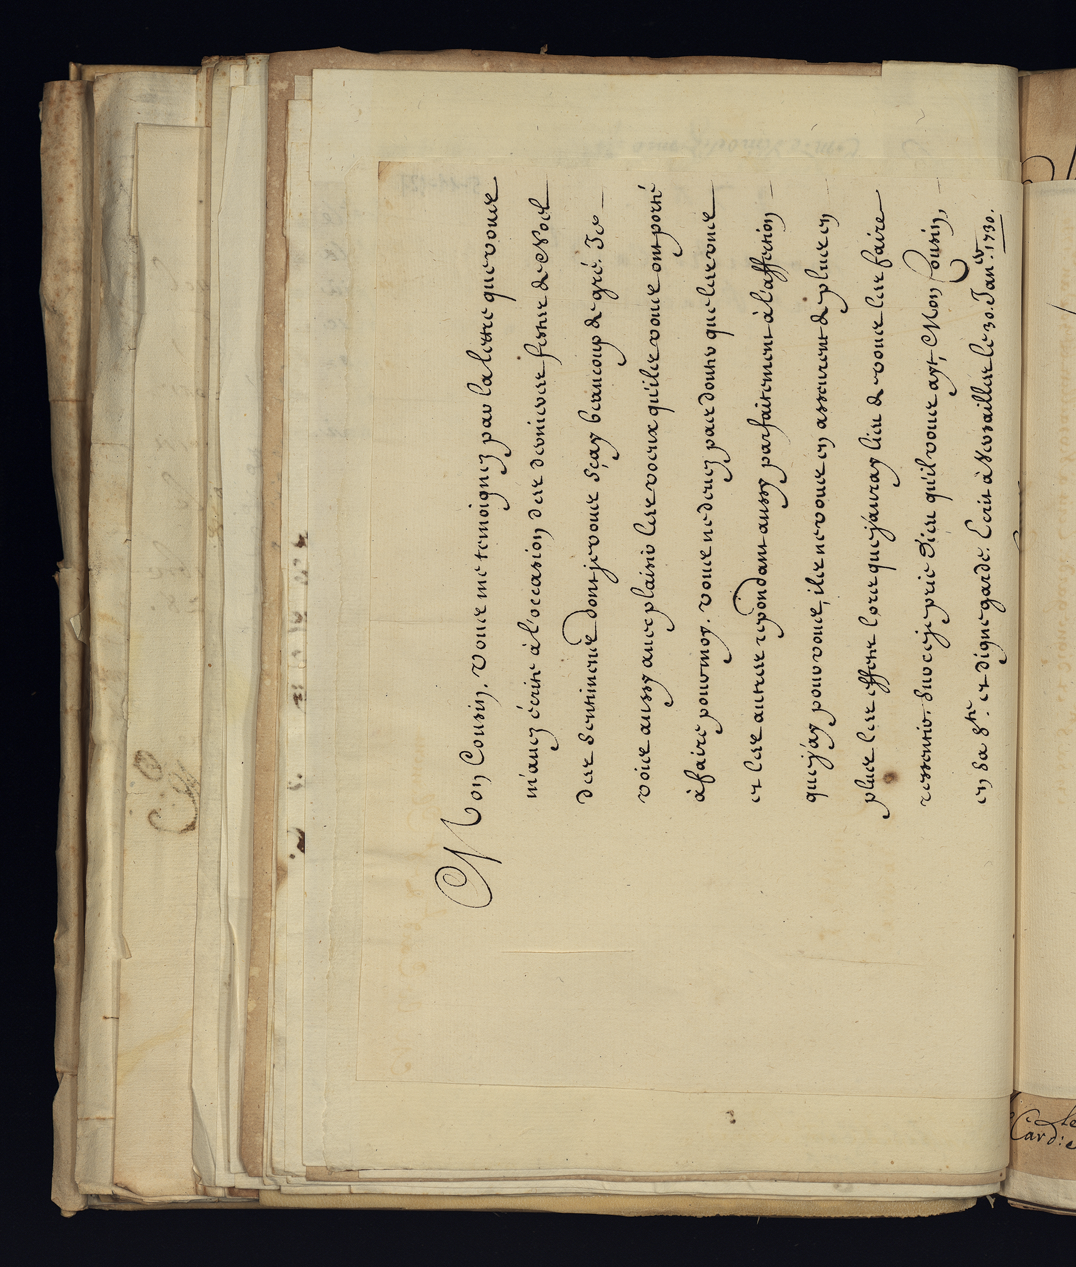 Mon Cousin. Vous me temoignez par la lettre que vous
m'avez écrite à l'occasion des dernieres festes de Noel
des sentimens dont je vous sçay beaucoup de gré. Je
vois aussy avec plaisir les voeux qu'ils vous ont porté
à faire pour moy. vous ne devez pas douter que les voeux
et les autres repondant aussy parfaitement à l'affection
que j'ay pour vous, ils ne vous en asseurent de plus en
plus les effets lors que j'auray lieu de vous les faire
ressentir. Sur ce je prie Dieu qu'il vous ayt, Mon Cousin,
en sa ste. et digne garde. Ecrit à Versailles le 30. Janer. 1730.
Card: